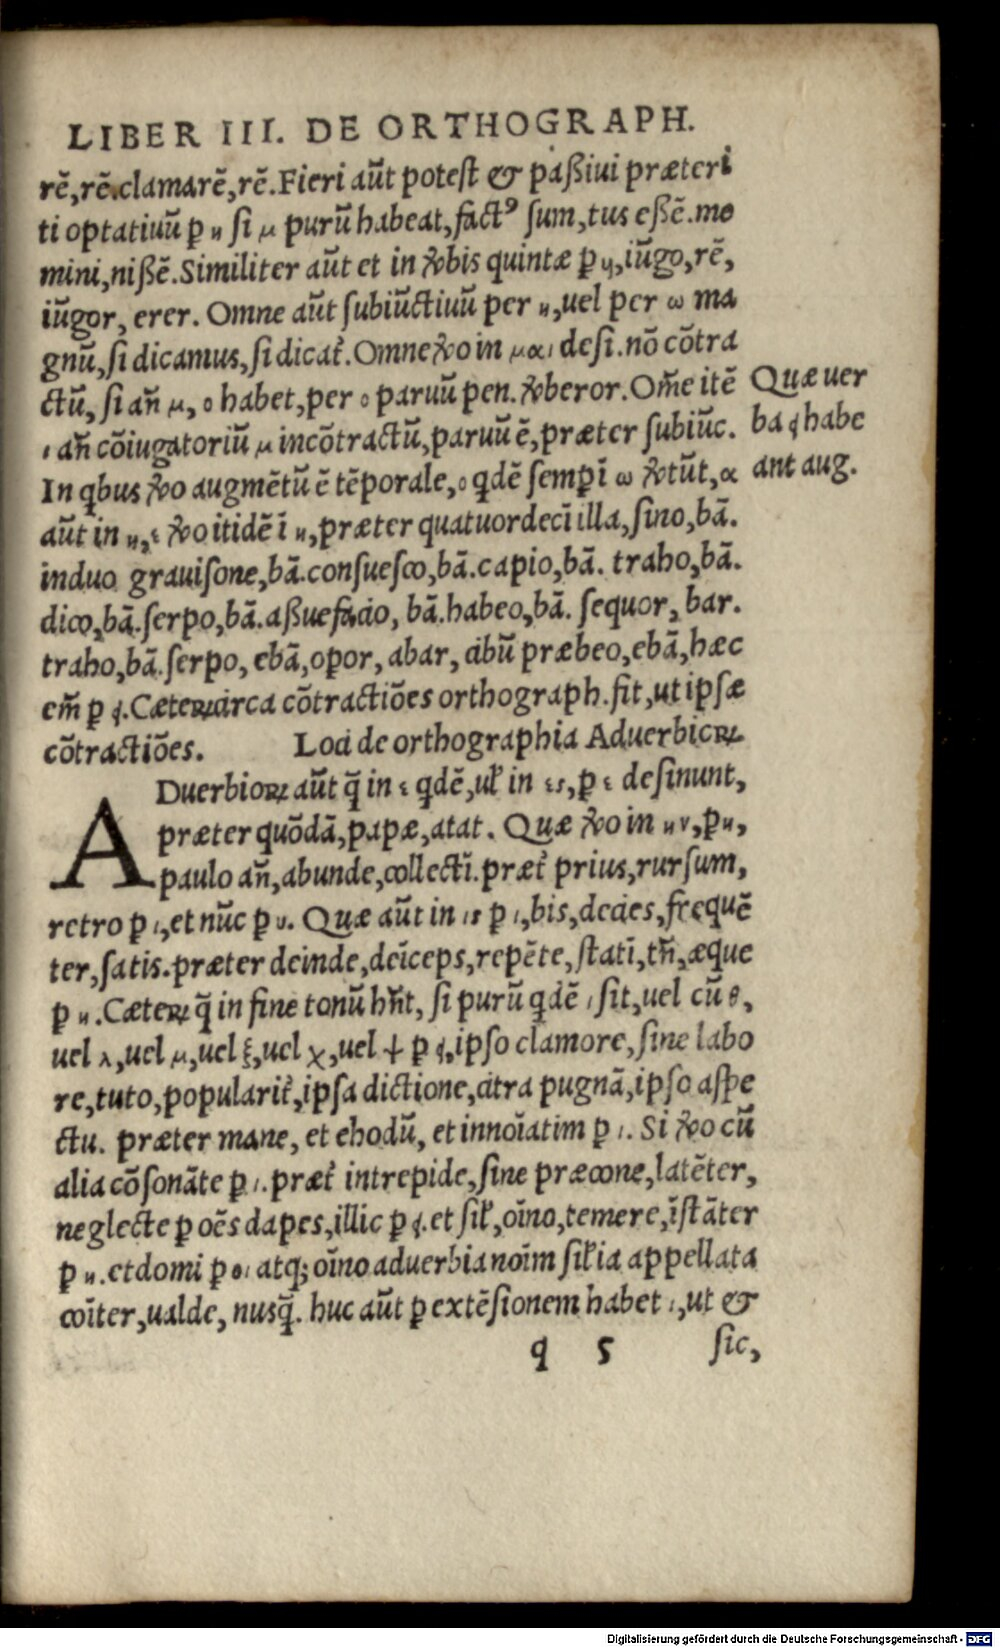 LIBER III. DE ORTHOGRAPH.
rē,rē.clamarē,rē.Fieri aūt potest & paßiui præteri
ti optatiuū ꝑ η si μ purū habeat,factꝰ sum,tus eßē.me
mini,nißē.Similiter aūt et in ꝟbis quintæ ꝑ ῃ,iūgo,rē,
iūgor, erer. Omne aūt subiūctiuū per η,uel per ω ma
gnū,si dicamus,si dicat᷑.Omne ꝟo in μαι desi.nō cōtra
ctū, si an̄ μ, ο habet,per ο paruū pen. ꝟberor.Om̄e itē
ι an̄ cōiugatoriū μ incōtractū,paruū ē,præter subiūc.
Quæ uer
ba ῃ habe
ant aug.
In qbus ꝟo augmētū ē tēporale,ο qdē semꝑ ī ω ꝟtūt,α
aūt in η,ε ꝟo itidē ī η,præter quatuordecī illa,sino,bā.
induo grauisone,bā.consuesco,bā.capio,bā. traho,bā.
dico,bā.serpo,bā.aßuefacio, bā.habeo,bā. sequor, bar.
traho,bā.serpo, ebā,oꝑor, abar, cibū præbeo,ebā,hæc
em̄ ꝑ ει.Cæteꝝ circa cōtractiōes orthograph.fit,ut ipsæ
cōtractiōes. Loci de orthographia Aduerbioꝝ
ADuerbioꝝ aūt q̄ in ε qdē,ul̓ in ες,ꝑ ε desinunt,
præter quōdā,papæ,atat. Quæ ꝟo in ην,ꝑ η,
paulo an̄,abunde,collectī.præt᷑ prius,rursum,
retro ꝑ ι,et nūc ꝑ υ. Quæ aūt in ις ꝑ ι,bis,decies,frequē
ter,satis.præter deinde,deīceps,repēte,statī,tn̄,æque
ꝑ η.Cæteꝝ q̄ in fine tonū hn̄t, si purū qdē ι sit,uel cū θ,
uel λ,uel μ,uel ξ,uel χ,uel ψ ꝑ ει,ipso clamore,sine labo
re,tuto,popularit᷑,ipsa dictione,citra pugnā,ipso aspe
ctu. præter mane, et ehodū, et innoīatim ꝑ ι. Si ꝟo cū
alia cōsonāte ꝑ ι.præt᷑ intrepide,sine præcone,latēter,
neglecte ꝑ oēs dapes,illic ꝑ ει.et sil̓,oīno,temere,īstāter
ꝑ η.et domi ꝑ οι atq; oīno aduerbia noīm sil̓ia appellata
coīter,ualde, nusq̄. huc aūt ꝑ extēsionem habet ι,ut &
q 5 sic,
Digitalisierung gefördert durch die Deutsche Forschungsgemeinschaft - DFG